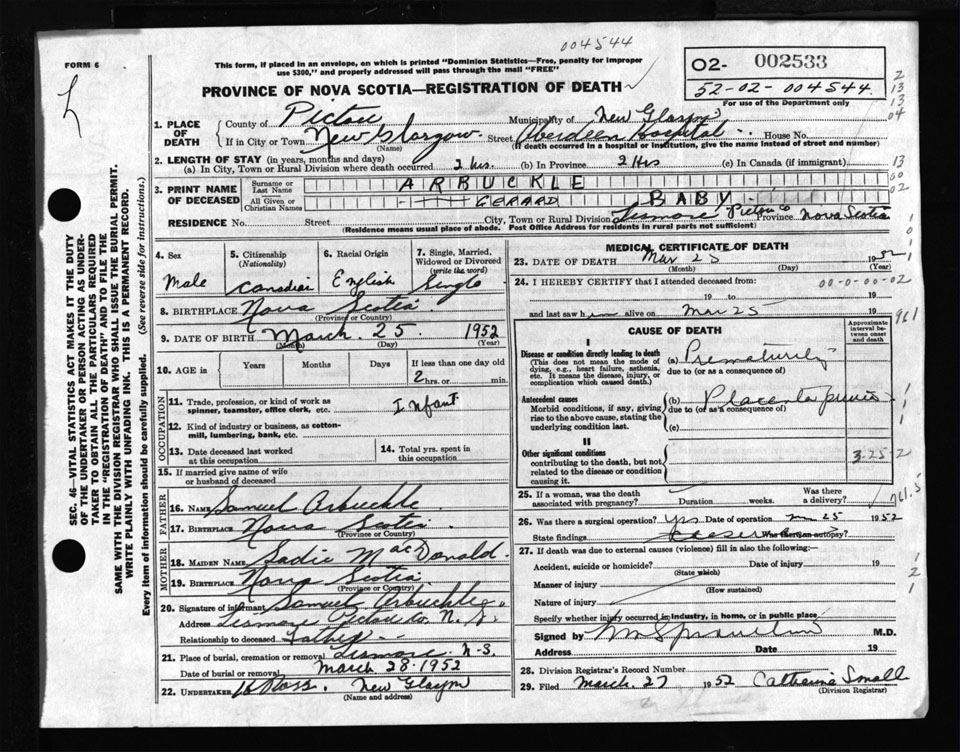 004544
FORM 6
This form, if placed in an envelope, on which is printed "Dominion Statistics—Free, penalty for improper
use $300," and properly addressed will pass through the mail "FREE"
O2- 002533
52-02-004544
For use of the Department only
PROVINCE OF NOVA SCOTIA—REGISTRATION OF DEATH
1. PLACE OF DEATH
County of Pictou Municipality of New Glasgow
If in City or Town New Glasgow Street Aberdeen Hospital House No.
(Name) (If death occurred in a hospital or institution, give the name instead of street and number)
2. LENGTH OF STAY (in years, months and days)
(a) In City, Town or Rural Division where death occurred 2 hrs. (b) In Province 2 Hrs (c) In Canada (if immigrant)
3. PRINT NAME OF DECEASED
Surname or Last Name ARBUCKLE
All Given or Christian Names GERARD BABY
RESIDENCE No. Street City, Town or Rural Division Lismore Pictou Co Province Nova Scotia
(Residence means usual place of abode. Post Office Address for residents in rural parts not sufficient)
4. Sex
Male
5. Citizenship
(Nationality)
Canadian
6. Racial Origin
English
7. Single, Married,
Widowed or Divorced
(write the word)
Single
8. BIRTHPLACE Nova Scotia
(Province or Country)
9. DATE OF BIRTH March 25 1952
(Month) (Day) (Year)
10. AGE in Years Months Days If less than one day old
2 hrs. or min.
OCCUPATION
11. Trade, profession, or kind of work as
spinner, teamster, office clerk, etc. Infant
12. Kind of industry or business, as cotton-
mill, lumbering, bank, etc.
13. Date deceased last worked
at this occupation
14. Total yrs. spent in
this occupation
15. If married give name of wife
or husband of deceased
FATHER
16. NAME Samuel Arbuckle
17. BIRTHPLACE Nova Scotia
(Province or Country)
MOTHER
18. MAIDEN NAME Sadie MacDonald
19. BIRTHPLACE Nova Scotia
(Province or Country)
20. Signature of informant Samuel Arbuckle
Address Lismore Pictou Co. N.S.
Relationship to deceased Father
21. Place of burial, cremation or removal Lismore N-S.
Date of burial or removal March 28-1952
22. UNDERTAKER Ross. New Glasgow
(Name and address)
MEDICAL CERTIFICATE OF DEATH
23. DATE OF DEATH Mar 25 1952
(Month) (Day) (Year)
24. I HEREBY CERTIFY that I attended deceased from: 00-0-00-02
19 to 19
and last saw him alive on Mar 25 19
CAUSE OF DEATH
Approximate
interval be-
tween onset
and death
I
Disease or condition directly leading to death
(This does not mean the mode of
dying, e.g., heart failure, asthenia,
etc. It means the disease, injury, or
complication which caused death.)
(a) Prematurity
due to (or as a consequence of)
Antecedent causes
Morbid conditions, if any, giving
rise to the above cause, stating the
underlying condition last.
(b) Placenta previa
due to (or as a consequence of)
(c)
II
Other significant conditions
contributing to the death, but not
related to the disease or condition
causing it.
3-25-2
25. If a woman, was the death
associated with pregnancy? Duration weeks. Was there
a delivery?
26. Was there a surgical operation? yes Date of operation m 25 1952
State findings Was there an autopsy?
27. If death was due to external causes (violence) fill in also the following:—
Accident, suicide or homicide? Date of injury 19
(State which)
Manner of injury
(How sustained)
Nature of injury
Specify whether injury occurred in industry, in home, or in public place
Signed by M.D.
Address Date 19
28. Division Registrar's Record Number
29. Filed March. 27 1952 Catherine Small
(Division Registrar)
SEC. 46—VITAL STATISTICS ACT MAKES IT THE DUTY
OF THE UNDERTAKER OR PERSON ACTING AS UNDER-
TAKER TO OBTAIN ALL THE PARTICULARS REQUIRED
IN THE "REGISTRATION OF DEATH" AND TO FILE THE
SAME WITH THE DIVISION REGISTRAR WHO SHALL ISSUE THE BURIAL PERMIT.
WRITE PLAINLY WITH UNFADING INK. THIS IS A PERMANENT RECORD.
Every item of information should be carefully supplied. (See reverse side for instructions.)
2
13
13
04
13
00
02
961
761.5